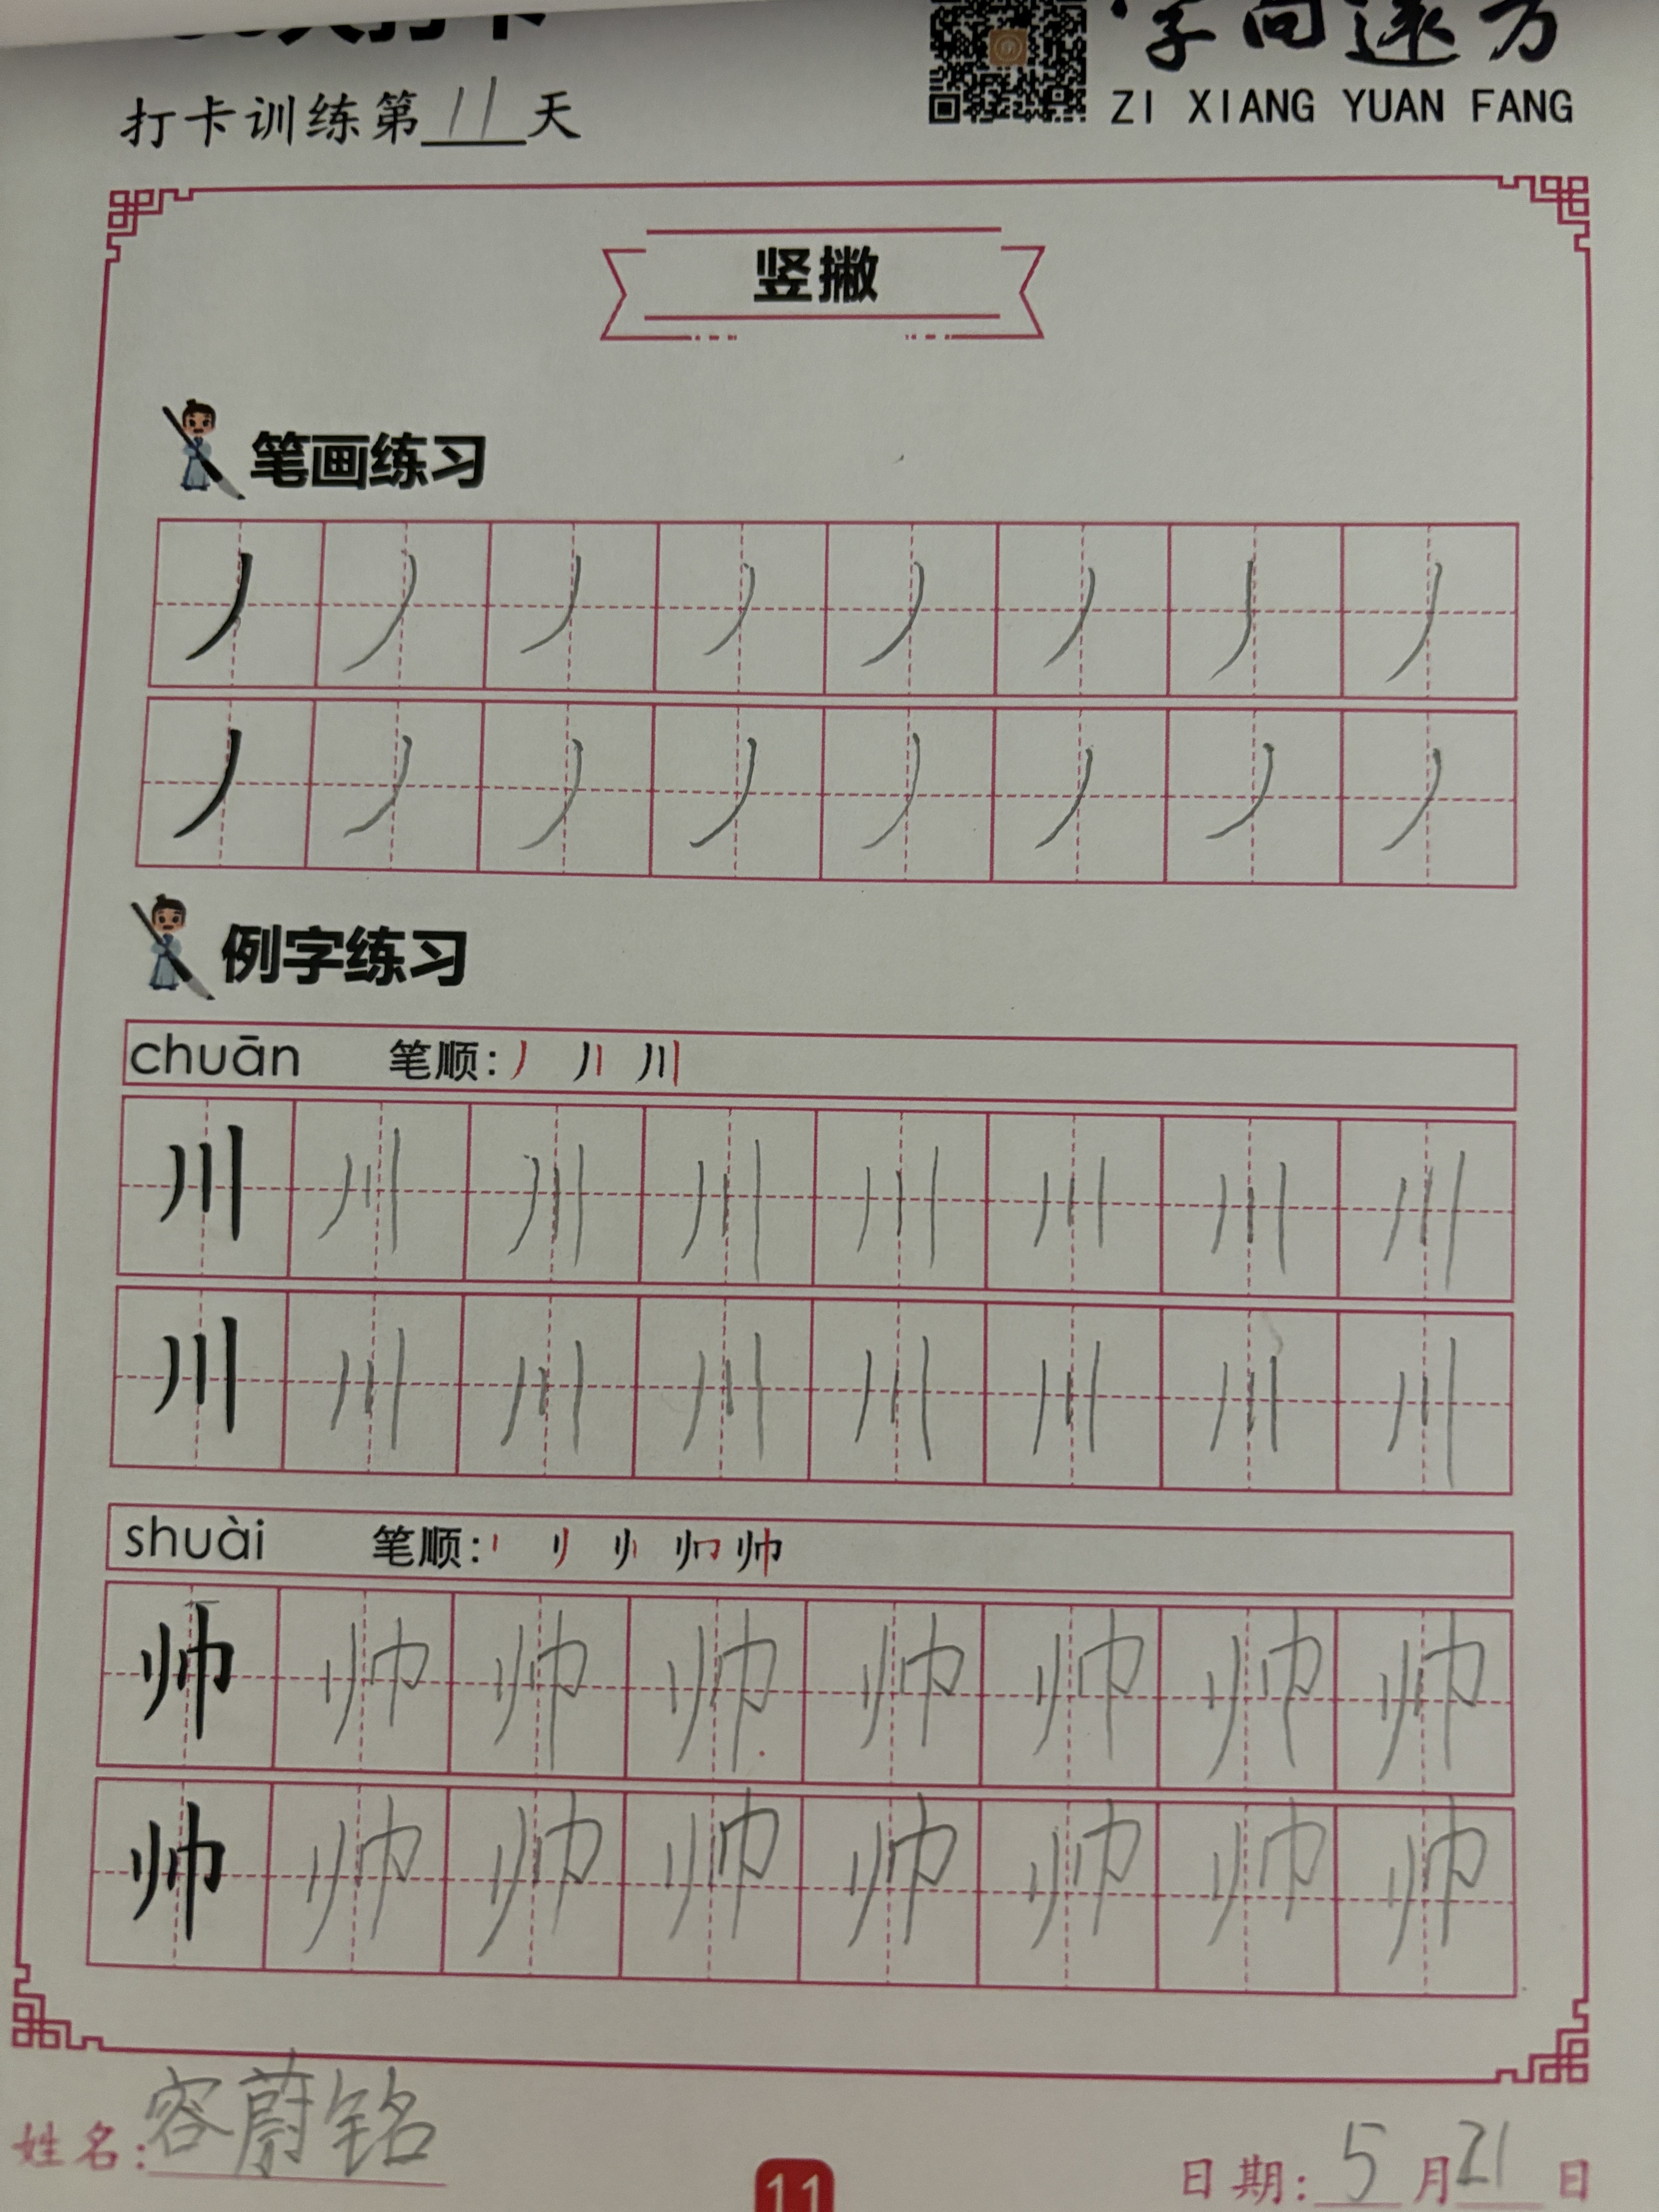 打卡训练第11天
字向远方
ZI XIANG YUAN FANG
竖撇
笔画练习
例字练习
chuān 笔顺:
川 川 川 川 川 川 川 川
川 川 川 川 川 川 川 川
shuài 笔顺:
帅 帅 帅 帅 帅 帅 帅 帅
帅 帅 帅 帅 帅 帅 帅 帅
姓名:容蔚铭
11
日期:5月21日